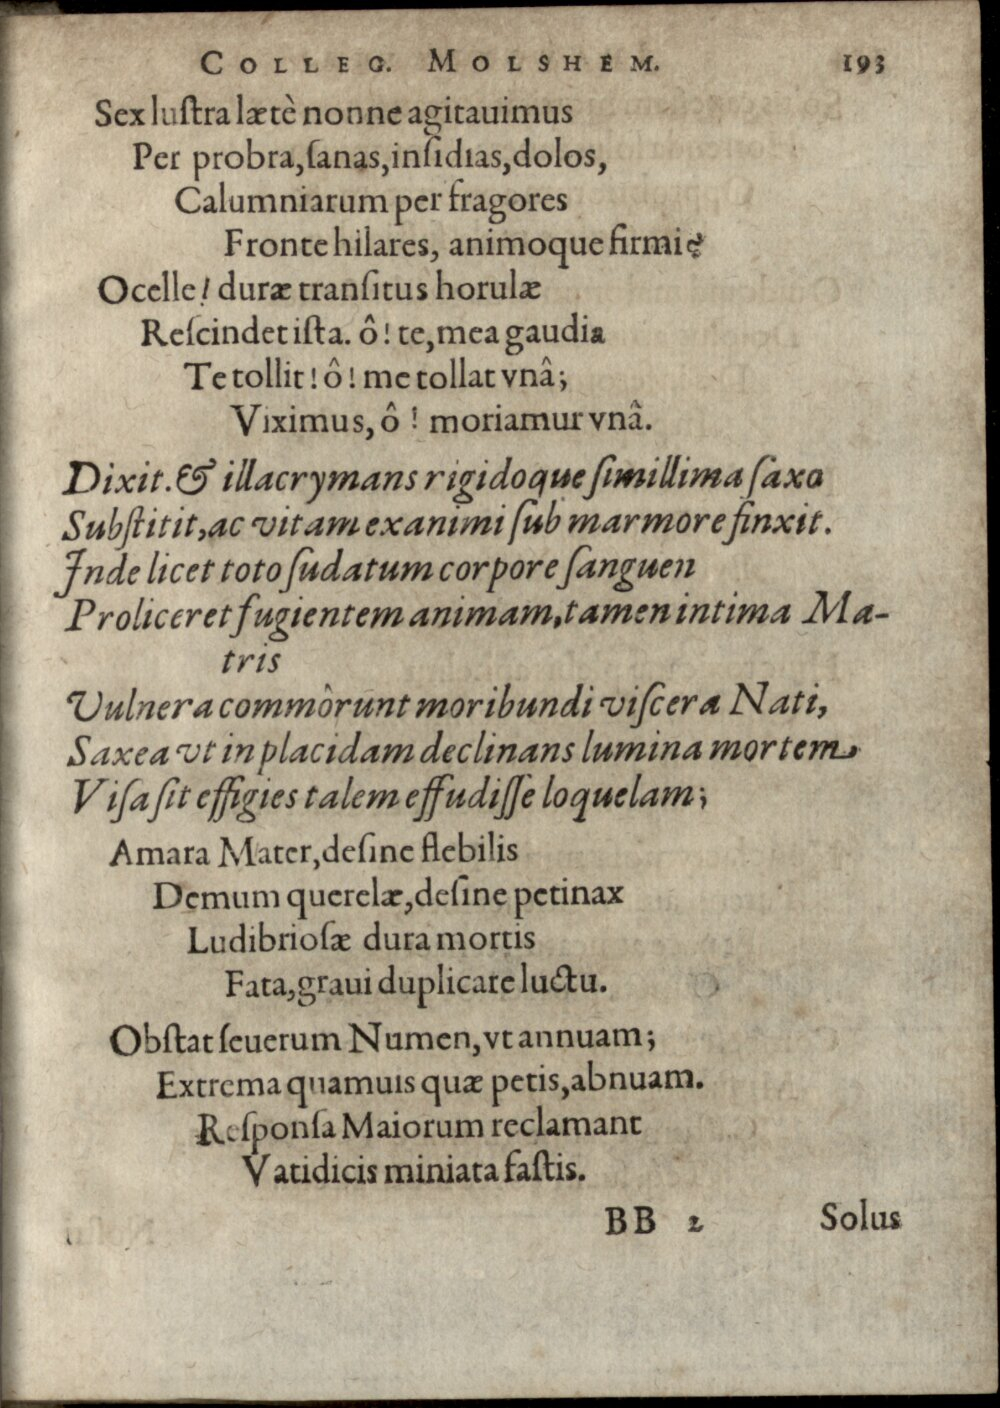 COLLEG. MOLSHEM. 193
Sex luſtra lætè nonne agitauimus
Per probra, ſanas, inſidias, dolos,
Calumniarum per fragores
Fronte hilares, animoque firmi?
Ocelle! duræ tranſitus horulæ
Reſcindet iſta. ô! te, mea gaudia
Te tollit! ô! me tollat vnâ;
Viximus, ô! moriamur vnâ.
Dixit. & illacrymans rigidoque ſimillima ſaxo
Subſtitit, ac vitam exanimi ſub marmore finxit.
Inde licet toto ſudatum corpore ſanguen
Proliceret fugientem animam, tamen intima Ma-
tris
Vulnera commôrunt moribundi viſcera Nati,
Saxea vt in placidam declinans lumina mortem,
Viſa ſit effigies talem effudiſſe loquelam;
Amara Mater, deſine flebilis
Demum querelæ, deſine petinax
Ludibrioſæ dura mortis
Fata, graui duplicare luctu.
Obſtat ſeuerum Numen, vt annuam;
Extrema quamuis quæ petis, abnuam.
Reſponſa Maiorum reclamant
Vatidicis miniata faſtis.
BB 2 Solus